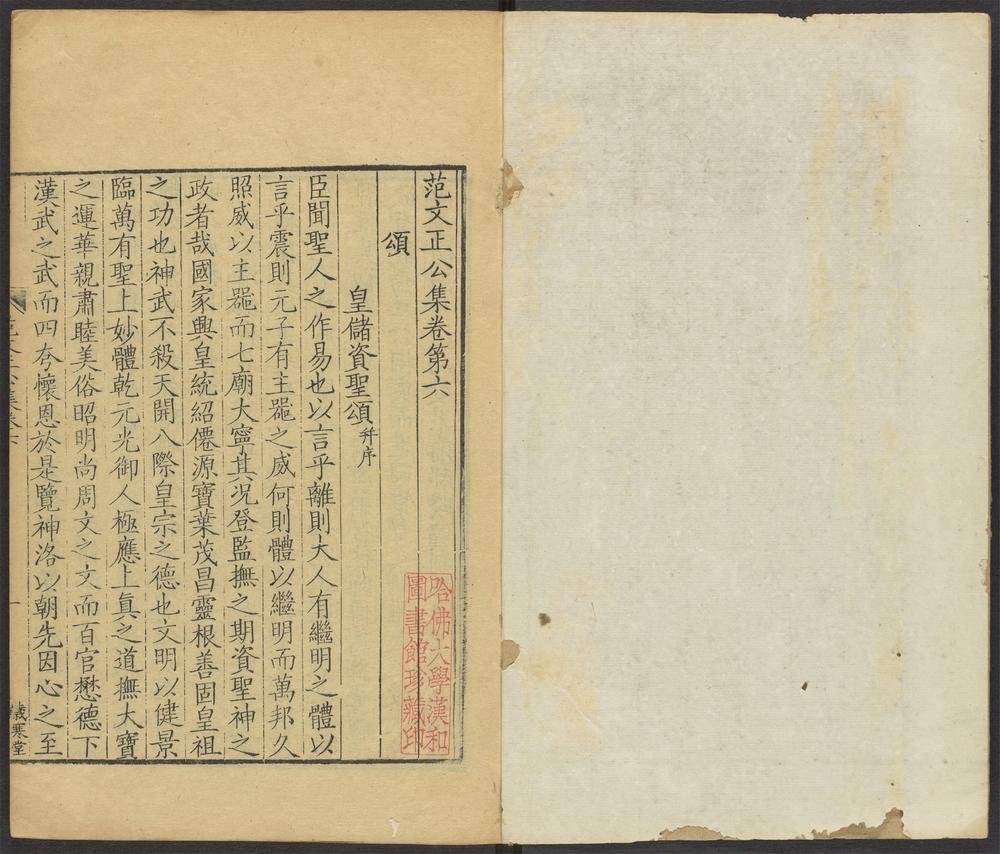 范文正公集卷第六
頌
皇儲資聖頌并序
臣聞聖人之作易也以言乎離則大人有繼明之體以
言乎震則元子有主噐之威何則體以繼明而萬邦久
照威以主噐而七廟大寧其況登監撫之期資聖神之
政者哉國家興皇統紹僊源寶葉茂昌靈根善固皇祖
之功也神武不殺天開八際皇宗之德也文明以健景
臨萬有聖上妙體乾元光御人極應上眞之道撫大寶
之運華親肅睦美俗昭明尚周文之文而百官懋德下
漢武之武而四夸懷恩於是覽神洛以朝先因心之至
一
歲寒堂
哈佛大學漢和
圖書館珍藏印